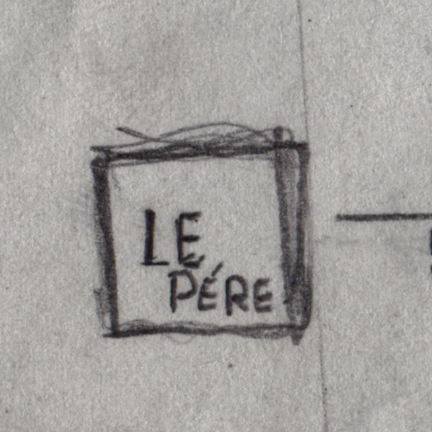 LE
PÉRE